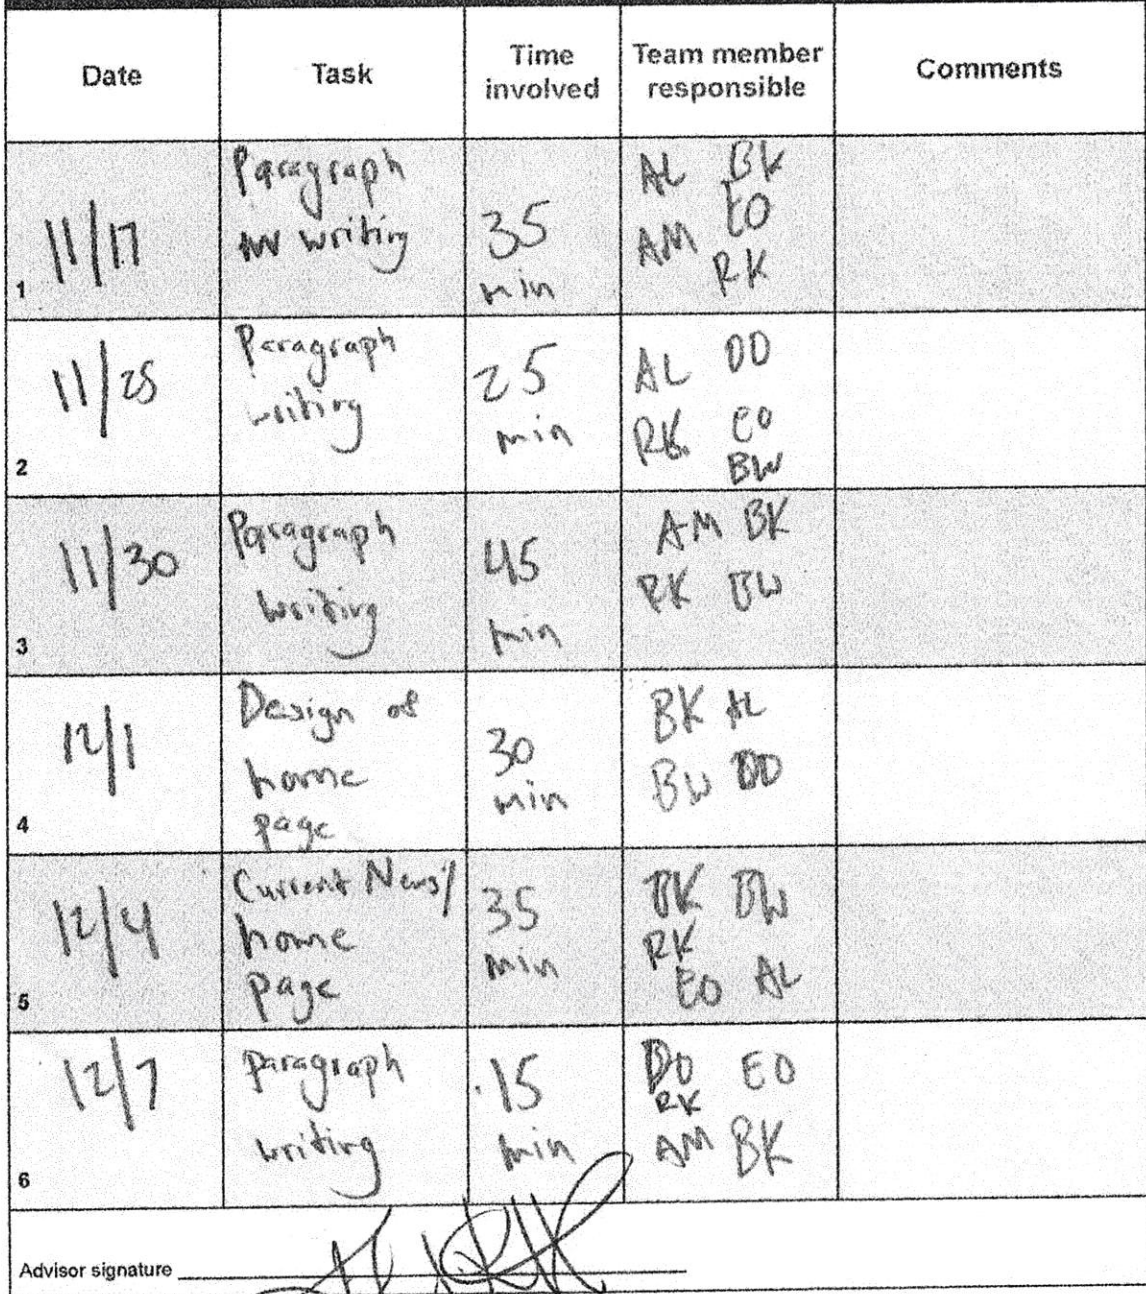 Date Task Time involved Team member responsible Comments
1 11/17 Paragraph writing 35 min AL BK AM EO RK
2 11/25 Paragraph writing 25 min AL DD RK EO BW
3 11/30 Paragraph writing 45 min AM BK RK BW
4 12/1 Design of home page 30 min BK AL BW DD
5 12/4 Current News/ home page 35 min BK BW RK EO AL
6 12/7 paragraph writing 15 min DD EO RK AM BK
Advisor signature